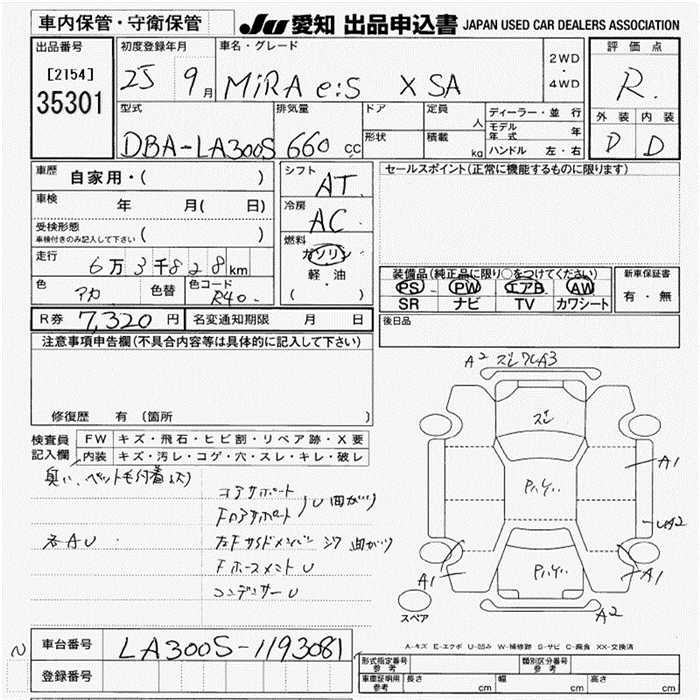 車内保管・守衛保管
JU 愛知 出品申込書 JAPAN USED CAR DEALERS ASSOCIATION
出品番号
[2154]
35301
初度登録年月
25 9月
車名・グレード
MiRA e:S X SA
2WD
・
4WD
評価点
R.
外装 内装
D D
型式
DBA-LA300S
排気量
660 cc
ドア
形状
定員
人
積載
kg
ディーラー・並行
モデル年式 年
ハンドル 左・右
車歴
自家用・( )
車検
年 月( 日)
受検形態
車検付きのみ記入して下さい ( )
走行
6万3千828km
色
アカ
色替
色コード
R40.
シフト
AT.
冷房
AC.
燃料
ガソリン
軽油
・
( )
セールスポイント(正常に機能するものに限ります)
装備品(純正品に限り○をつけてください)
PS PW エアB AW
SR ナビ TV カワシート
新車保証書
有・無
R券 7,320 円 名変通知期限 月 日
後日品
注意事項申告欄(不具合内容等は具体的に記入して下さい)
修復歴 有 (箇所 )
検査員
記入欄
FW キズ・飛石・ヒビ割・リペア跡・X要
内装 キズ・汚レ・コゲ・穴・スレ・キレ・破レ
臭い、ペット毛付着あり
コアサポート
FロアサポートU曲がり
各AU
左Fサイドメンバー シワ 曲がり
FホースメントU
コンデンサーU
A2 ズレワレA3
ズレ
A1
UA2
A1
A1
A2
スペア
A-キズ E-エクボ U-凹み W-補修跡 S-サビ C-腐食 XX-交換済
車台番号
LA300S-1193081
登録番号
形式指定番号
参考
類別区分番号
参考
車庫証明用
参考
長さ cm 幅 cm 高さ cm